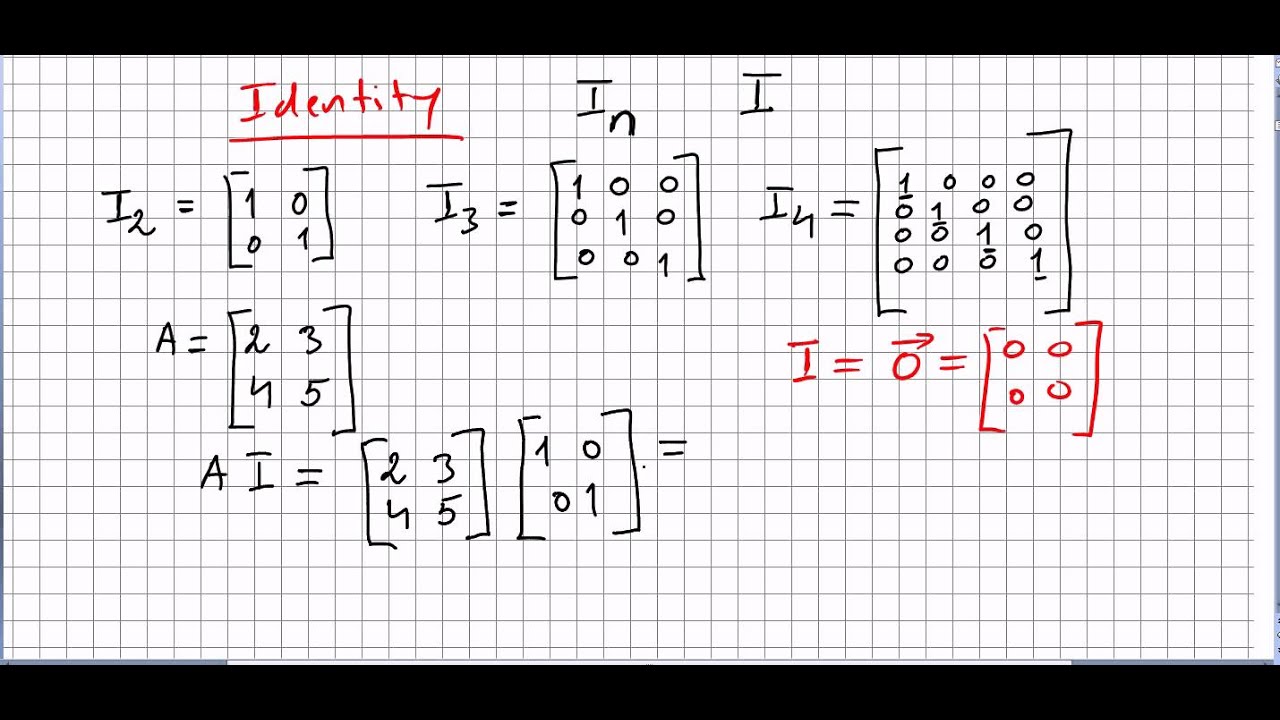 Identity Iₙ I
I₂ = [1 0
0 1] I₃ = [1 0 0
0 1 0
0 0 1] I₄ = [1 0 0 0
0 1 0 0
0 0 1 0
0 0 0 1]
A = [2 3
4 5] I = 0⃗ = [0 0
0 0]
A I = [2 3
4 5] [1 0
0 1] =